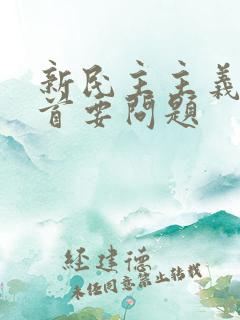 新民主主義
首要問題
经建德
未经同意禁止转载